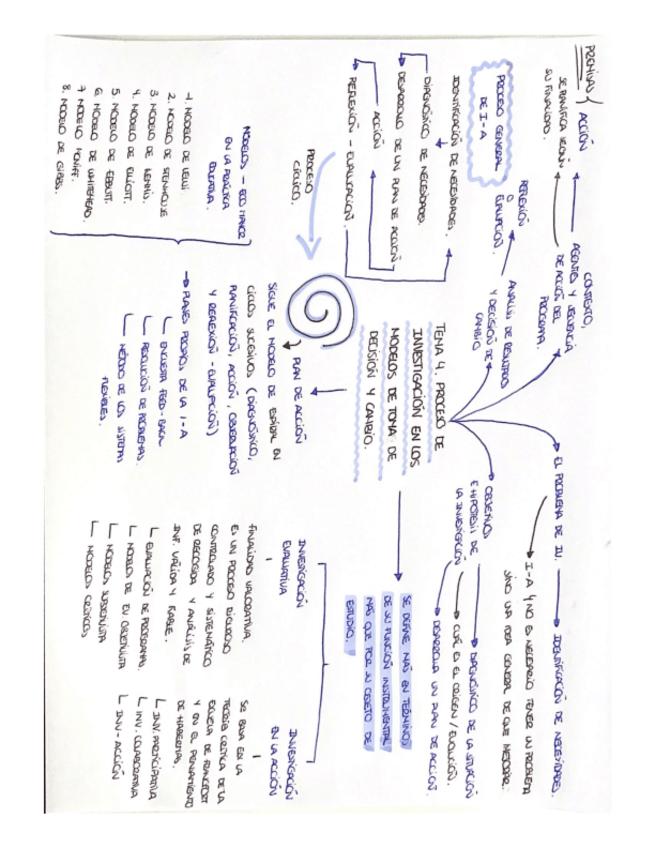 PREMISAS
ACCIÓN
SE PLANIFICA SEGÚN
SU FINALIDAD.
CONTEXTO,
AGENTES Y SECUENCIA
DE ACCIÓN DEL
PROGRAMA.
EL PROBLEMA DE IU.
IDENTIFICACIÓN DE NECESIDADES.
I-A Y NO ES NECESARIO TENER UN PROBLEMA
SINO UNA IDEA GENERAL DE QUE MEJORAR.
REFLEXIÓN
O
EVALUACIÓN.
ANÁLISIS DE RESULTADOS
Y DECISIÓN DE
CAMBIO
OBJETIVOS
E HIPÓTESIS DE
LA INVESTIGACIÓN
DIAGNÓSTICO DE LA SITUACIÓN
CUÁL ES EL ORIGEN / EVOLUCIÓN.
DESARROLLA UN PLAN DE ACCIÓN.
PROCESO GENERAL
DE I-A
IDENTIFICACIÓN DE NECESIDADES.
DIAGNÓSTICO DE NECESIDADES.
DESARROLLO DE UN PLAN DE ACCIÓN
ACCIÓN
REFLEXIÓN - EVALUACIÓN.
PROCESO
CÍCLICO.
TEMA 4. PROCESO DE
INVESTIGACIÓN EN LOS
MODELOS DE TOMA DE
DECISIÓN Y CAMBIO.
SE DEFINE MÁS EN TÉRMINOS
DE SU FUNCIÓN INSTRUMENTAL
MÁS QUE POR SU OBJETO DE
ESTUDIO.
PLAN DE ACCIÓN
SIGUE EL MODELO DE ESPIRAL EN
CICLOS SUCESIVOS (DIAGNÓSTICO,
PLANIFICACIÓN, ACCIÓN, OBSERVACIÓN
Y REFLEXIÓN - EVALUACIÓN)
PLANES PROPIOS DE LA I-A
ENCUESTA FEED-BACK
RESOLUCIÓN DE PROBLEMAS.
MÉTODO DE LOS SISTEMAS
FLEXIBLES.
MODELOS - ECO MAYOR
EN LA POLÍTICA
EDUCATIVA.
1. MODELO DE LEWIN
2. MODELO DE STENHOUSE
3. MODELO DE KEMMIS.
4. MODELO DE ELLIOTT.
5. MODELO DE EBBUTT.
6. MODELO DE WHITEHEAD.
7. MODELO
8. MODELO DE GIBBS.
INVESTIGACIÓN
EVALUATIVA
FINALIDAD VALORATIVA.
ES UN PROCESO RIGUROSO
CONTROLADO Y SISTEMÁTICO
DE RECOGIDA Y ANÁLISIS DE
INF. VÁLIDA Y FIABLE.
EVALUACIÓN DE PROGRAMAS.
MODELO DE EV OBJETIVISTA
MODELOS SUBJETIVISTA
MODELOS CRÍTICOS
INVESTIGACIÓN
EN LA ACCIÓN
SE BASA EN LA
TEORÍA CRÍTICA DE LA
ESCUELA DE FRANCFORT
Y EN EL PENSAMIENTO
DE HABERMAS.
INV. PARTICIPATIVA
INV. COLABORATIVA
INV - ACCIÓN